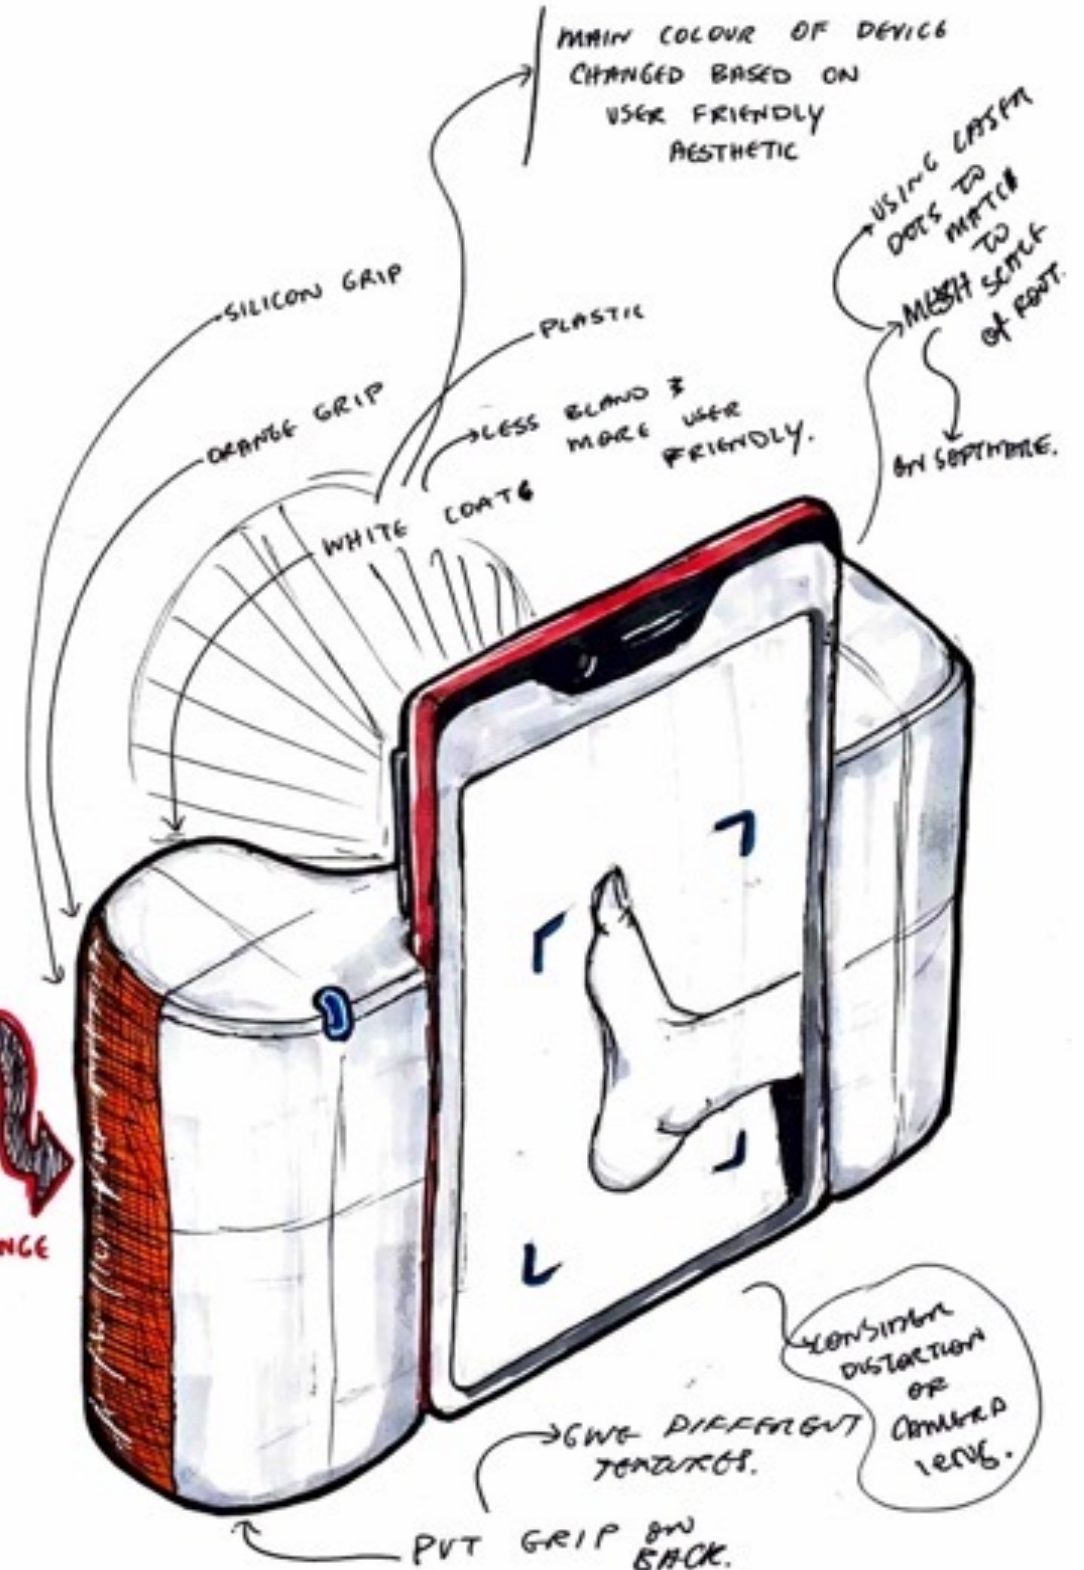 MAIN COLOUR OF DEVICE
CHANGED BASED ON
USER FRIENDLY
AESTHETIC
USING LASER
DOTS TO
MATCH
TO
MESH SCALE
of FOOT.
ON SOFTWARE.
SILICON GRIP
PLASTIC
ORANGE GRIP
LESS BLAND &
MORE USER
FRIENDLY.
WHITE COATS
NGE
CONSIDER
DISTORTION
OF
CAMERA
lens.
GIVE DIFFERENT
TEXTURES.
PUT GRIP ON
BACK.